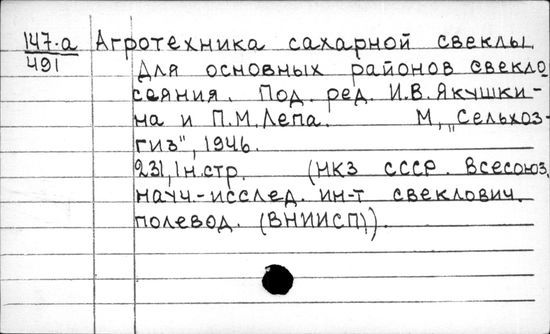 147-а Агротехника сахарной свеклы
491 Для основных районов свекло
сеяния. Под. ред. И.В.Якушки-
на и П.М.Лепа. М, „Сельхоз-
гиз", 1946.
231,1н.стр. (НКЗ СССР. Всесоюз.
научн.-исслед. ин-т свеклович.
полевод. (ВНИИСП)).